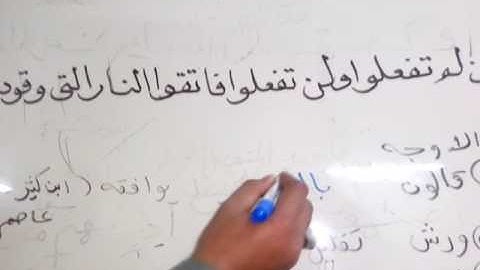 لم تفعلوا ولن تفعلوا فاتقوا النار التي وقود
الاوجه
قالون بال يوافقه (ابن كثير
عاصم
ورش تقليل